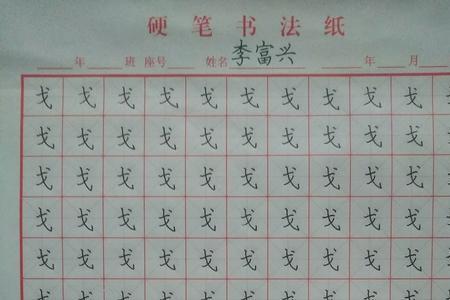 硬笔书法纸
年 班 座号 姓名 李富兴 年 月
戈 戈 戈 戈 戈 戈 戈 戈 戈 戈
戈 戈 戈 戈 戈 戈 戈 戈 戈 戈
戈 戈 戈 戈 戈 戈 戈 戈 戈 戈
戈 戈 戈 戈 戈 戈 戈 戈 戈 戈
戈 戈 戈 戈 戈 戈 戈 戈 戈 戈
戈 戈 戈 戈 戈 戈 戈 戈 戈 戈